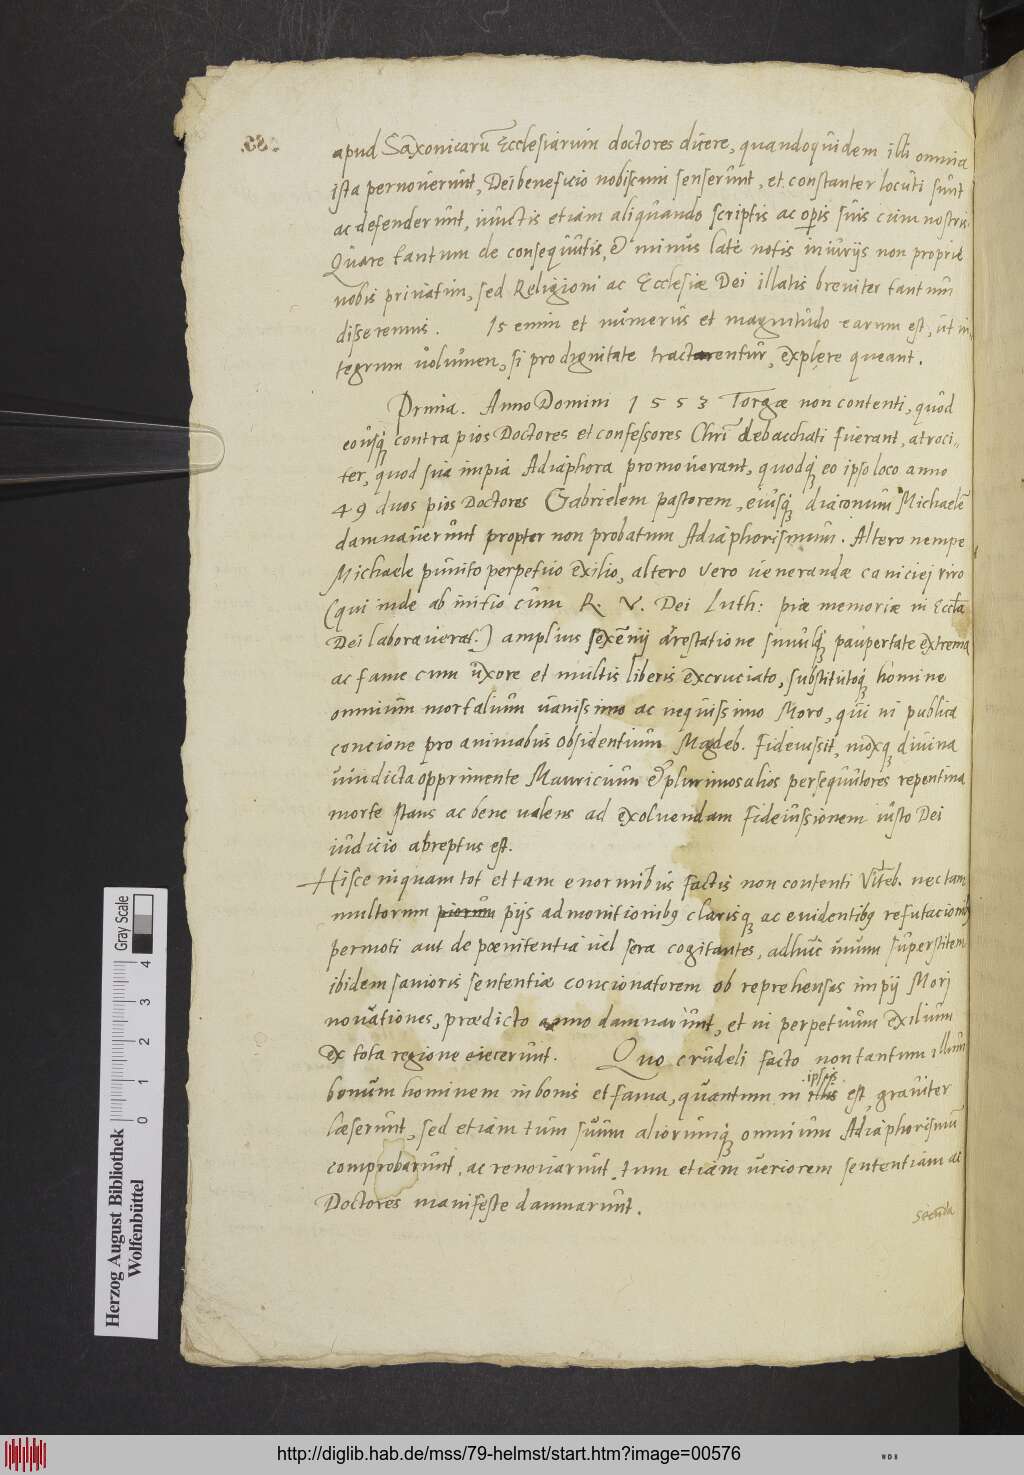 apud Saxonicarū Ecclesiarum doctores dicere, quandoquidem illi omnia
ista pernoverunt, Dei beneficio nobiscum senserunt, et constanter locuti sunt
ac defenderunt, iunctis etiam aliquando scriptis ac opis suis cum nostris.
Quare tantum de consequutis, & minus late notis iniurijs non proprie
nobis privatim, sed Religioni ac Ecclesiæ Dei illatis breviter tantum
disseremus. Is enim et numerus et magnitudo earum est, ut in-
tegrum volumen, si pro dignitate tractarentur, explere queant.
Prima. Anno Domini 1553 Torgæ non contenti, quod
eousq́ contra pios Doctores et confessores Chrī debacchati fuerant, atroci-
ter, quod sua impia Adiaphora promoverant, quodq́ eo ipso loco anno
49 duos pios Doctores Gabrielem pastorem, eiusq́ diaconum Michaelē
damnaverunt propter non probatum Adiaphorismum. Altero nempe
Michaele punito perpetuo exilio, altero vero venerandæ caniciej viro
(qui inde ab initio cum R. V. Dei Luth: piæ memoriæ in Eccla
Dei laboraverat.) amplius sexēnij arestatione simulq́ paupertate extrema
ac fame cum uxore et multis liberis excruciato, substitutoq́ homine
omnium mortalium vanissimo ac nequissimo Moro, qui in publica
concione pro animabus obsidentium Magdeb. fideiussit, moxq́ divina
vindicta opprimente Mauricium & plurimos alios persequutores repentina
morte stans ac bene valens ad exolvendam fideiussionem iusto Dei
iudicio abreptus est.
Hisce inquam tot et tam enormibus factis non contenti Viteb. nec tam
multorum piorum pijs admonitionibq clarisq́ ac evidentibq refutacionibq
permoti aut de pœnitentia vel sera cogitantes, adhuc unum superstitem
ibidem sanioris sententiæ concionatorem ob reprehensas impij Morj
novationes, prædicto anno damnarunt, et in perpetuum exilium
ex tota regione eiecerunt. Quo crudeli facto non tantum illum
bonum hominem in bonis et fama, quantum in illis ipsis est, graviter
læserunt, sed etiam tum suum aliorumq́ omnium Adiaphorismū
comprobarunt, ac renovarunt, tum etiam veriorem sententiam ac
Doctores manifeste damnarunt.
Secunda
Herzog August Bibliothek
Wolfenbüttel
Gray Scale
0 1 2 3 4
http://diglib.hab.de/mss/79-helmst/start.htm?image=00576